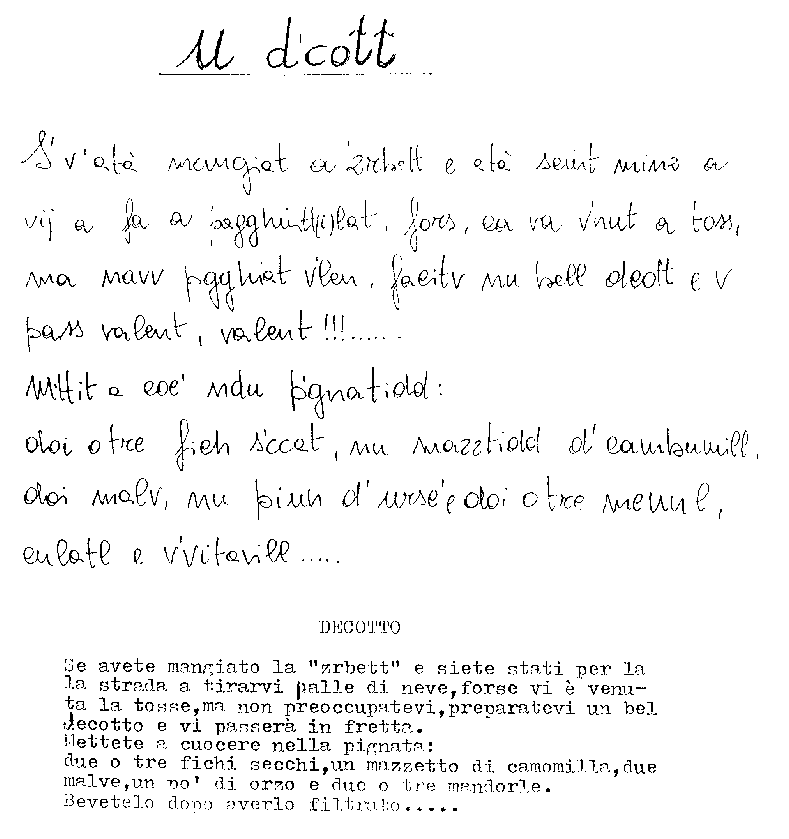 U d'cott
S' v'atà mangiat a zrbett e atà seint minz a
vij a fa a fors, ca va v'nut a toss,
ma navv pgghiat v'len, facitv nu bell dcott e v
pass valent, valent !!!......
Mttit a coc' ndu p'gnatidd:
doi o tre fich s'ccat, nu mazztidd d' cambumill,
doi malv, nu piun d' urse e doi o tre menul,
culatl e v'vitavill.....
DECOTTO
Se avete mangiato la "zrbett" e siete stati per la
la strada a tirarvi palle di neve,forse vi è venu-
ta la tosse,ma non preoccupatevi,preparatevi un bel
decotto e vi passerà in fretta.
Mettete a cuocere nella pignata:
due o tre fichi secchi,un mazzetto di camomilla,due
malve,un po' di orzo e due o tre mandorle.
Bevetelo dopo averlo filtrato.....